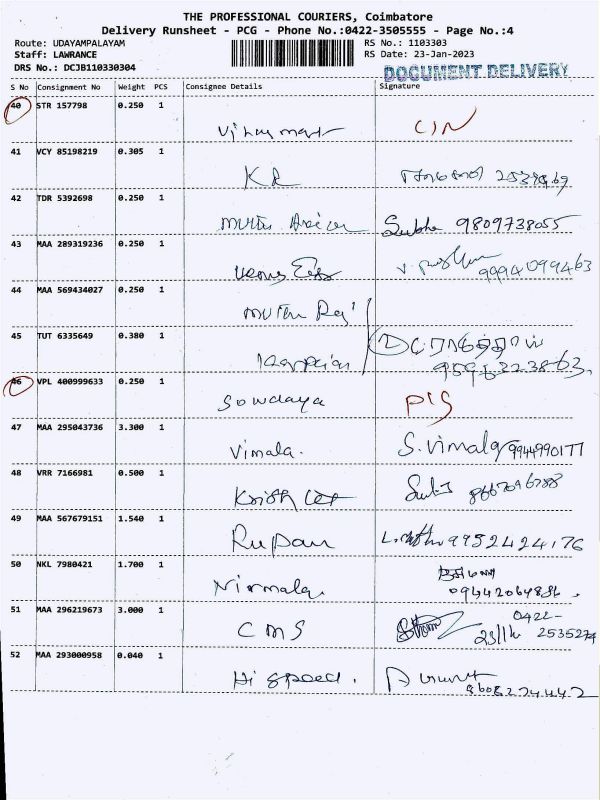 THE PROFESSIONAL COURIERS, Coimbatore
Delivery Runsheet - PCG - Phone No.:0422-3505555 - Page No.:4
Route: UDAYAMPALAYAM
RS No.: 1103303
Staff: LAWRANCE
RS Date: 23-Jan-2023
DRS No.: DCJB110330304
DOCUMENT DELIVERY
S No Consignment No Weight PCS Consignee Details Signature
40 STR 157798 0.250 1
CIN
41 VCY 85198219 0.305 1
KR
42 TDR 5392698 0.250 1
Subha 9809738055
43 MAA 289319236 0.250 1
9994099463
44 MAA 569434027 0.250 1
Muthu Raj
45 TUT 6335649 0.380 1
46 VPL 400999633 0.250 1
Sowdaya
47 MAA 295043736 3.300 1
Vimala. S. Vimala 9944990177
48 VRR 7166981 0.500 1
8667096788
49 MAA 567679151 1.540 1
Rupan 9952424176
50 NKL 7980421 1.700 1
Nirmala
51 MAA 296219673 3.000 1
CMS 0422-
2535274
52 MAA 293000958 0.040 1
Hi speed.